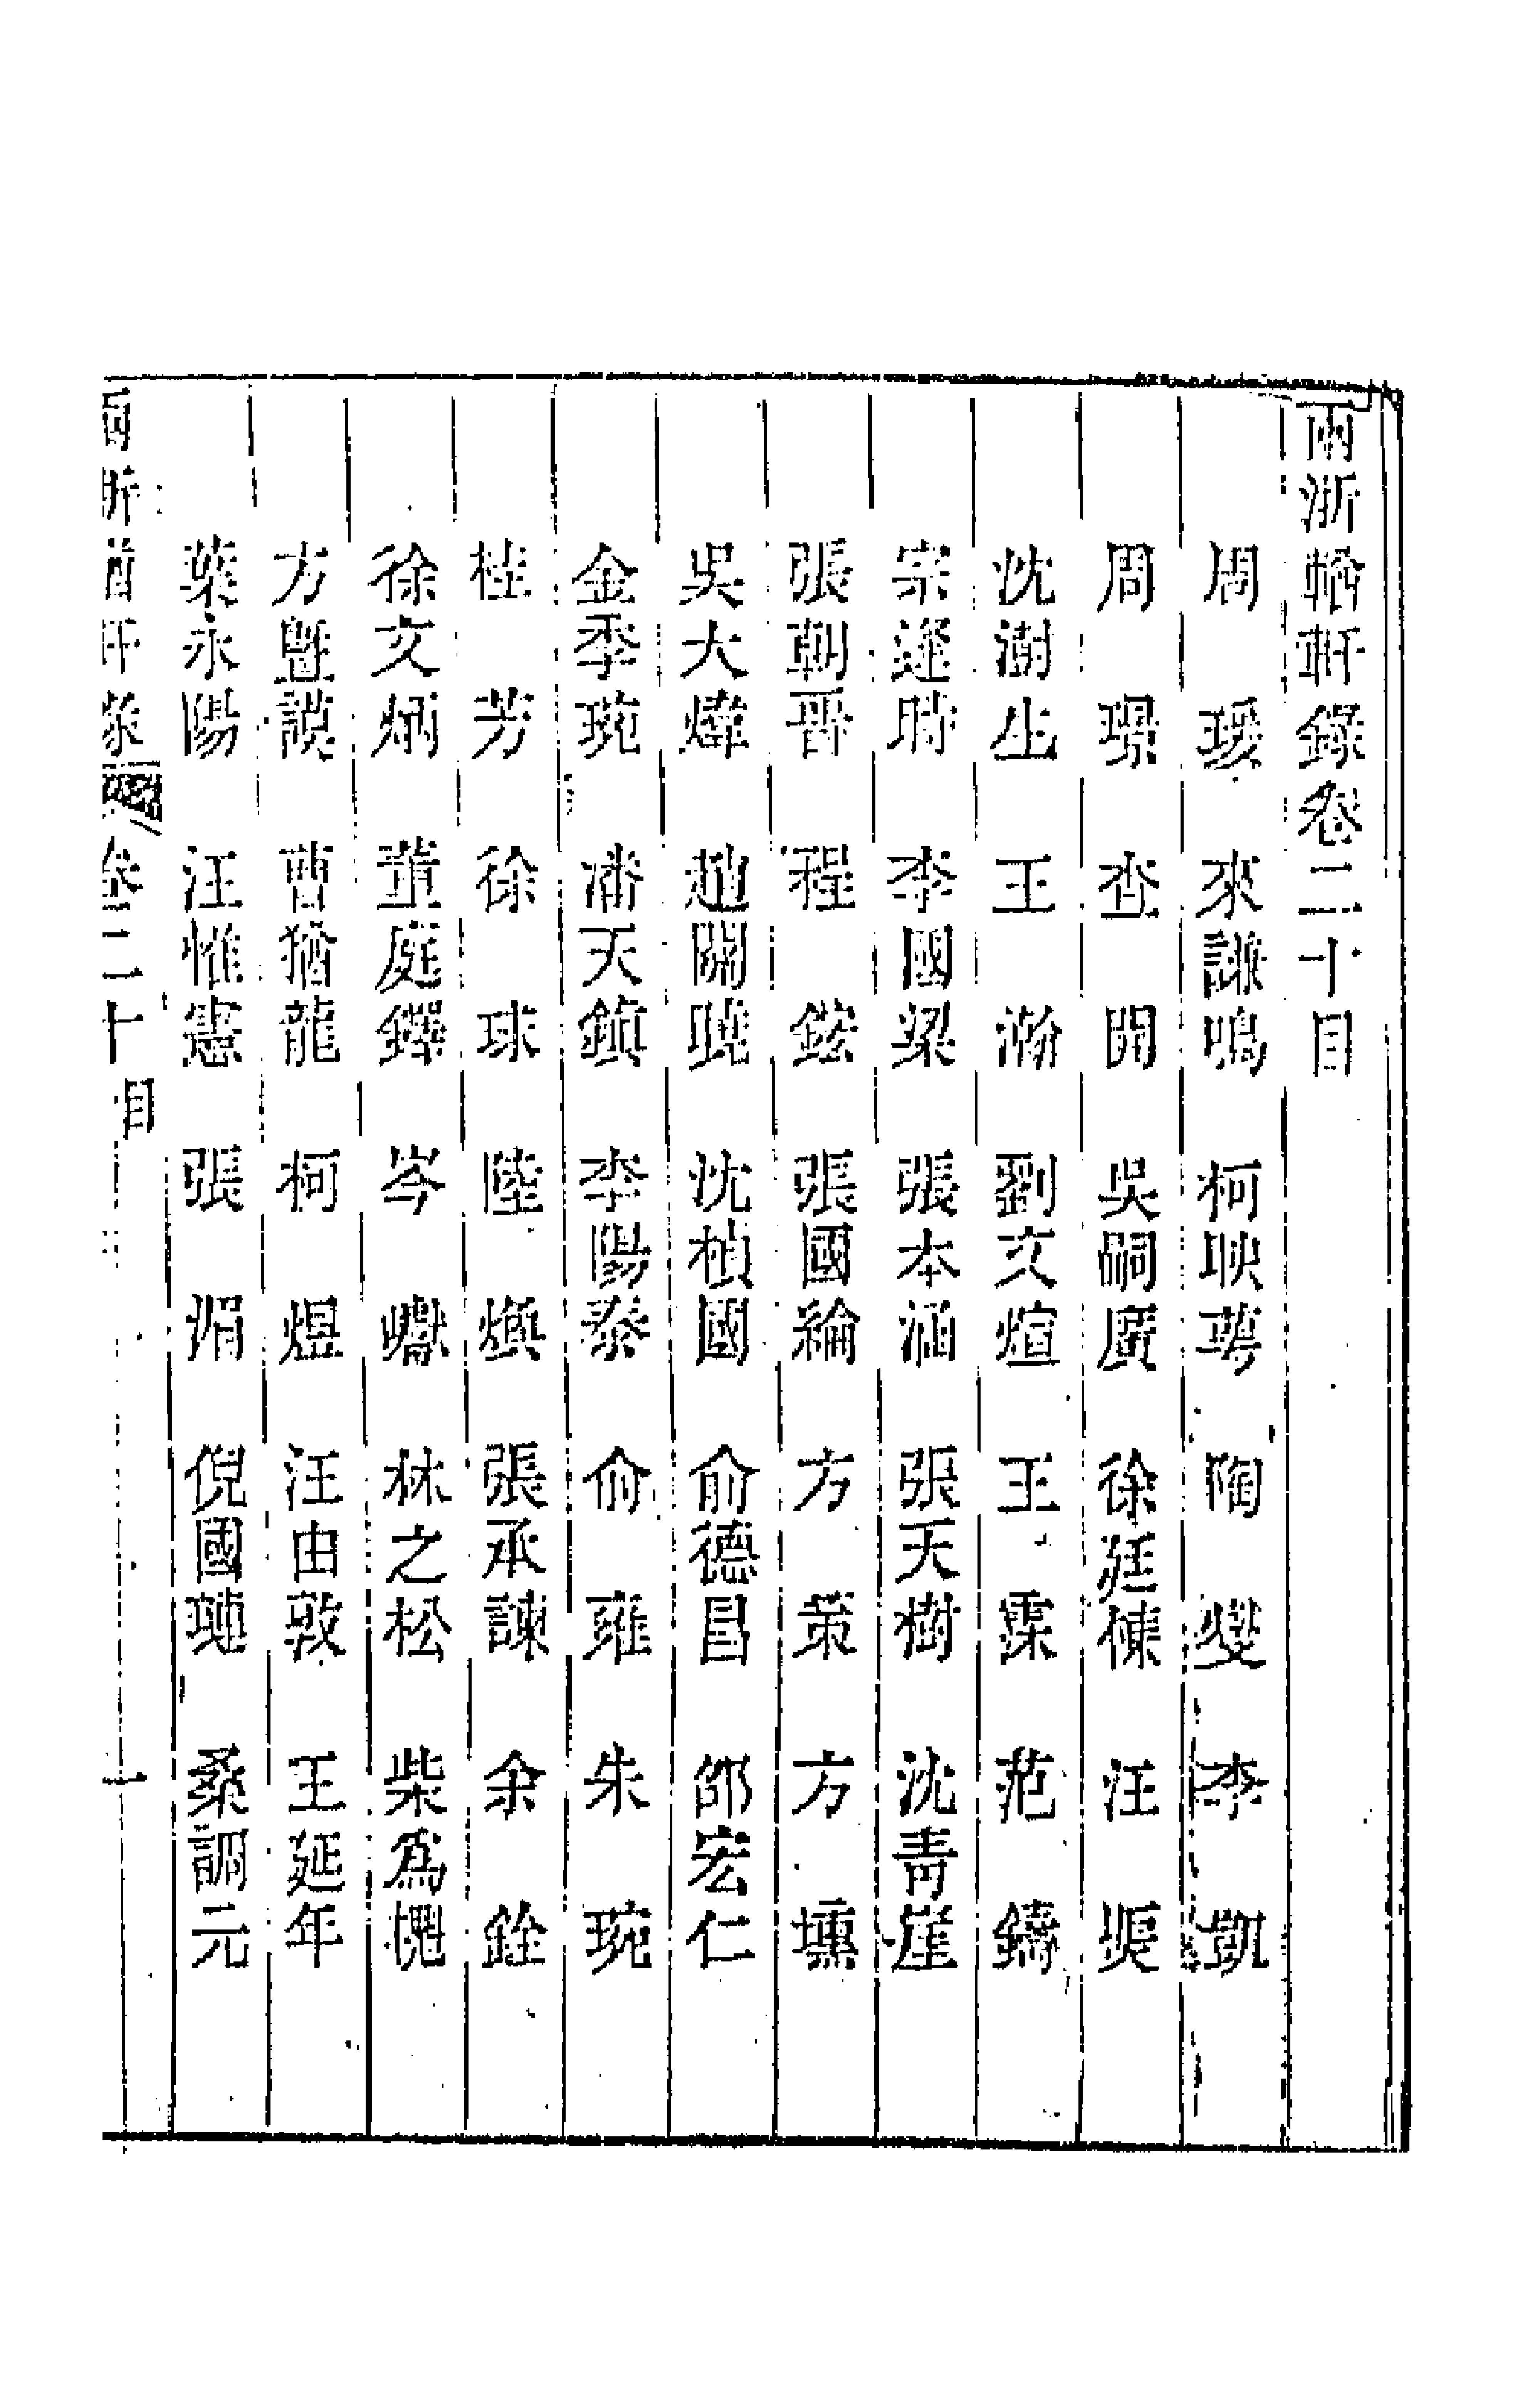 兩浙輶軒錄卷二十目
周 瑗 來謙鳴 柯映萼 陶 燮 李 凱
周 璟 查 開 吳嗣廣 徐廷棟 汪 振
沈澍生 王 瀚 劉文煊 王 霖 范 鑄
宋逢時 李國梁 張本涵 張天樹 沈青崖
張朝晉 程 鉉 張國綸 方 策 方 壎
吳大煒 趙關曉 沈楨國 俞德昌 邵宏仁
金季琬 潘天鎮 李陽泰 俞 雍 朱 琬
桂 芳 徐 球 陸 煥 張承諫 余 銓
徐文炳 董庭鐸 岑 巘 林之松 柴為槐
方曁謨 曹猶龍 柯 煜 汪由敦 王延年
葉永陽 汪惟憲 張 湄 倪國璉 桑調元
兩浙輶軒錄 卷二十目 一